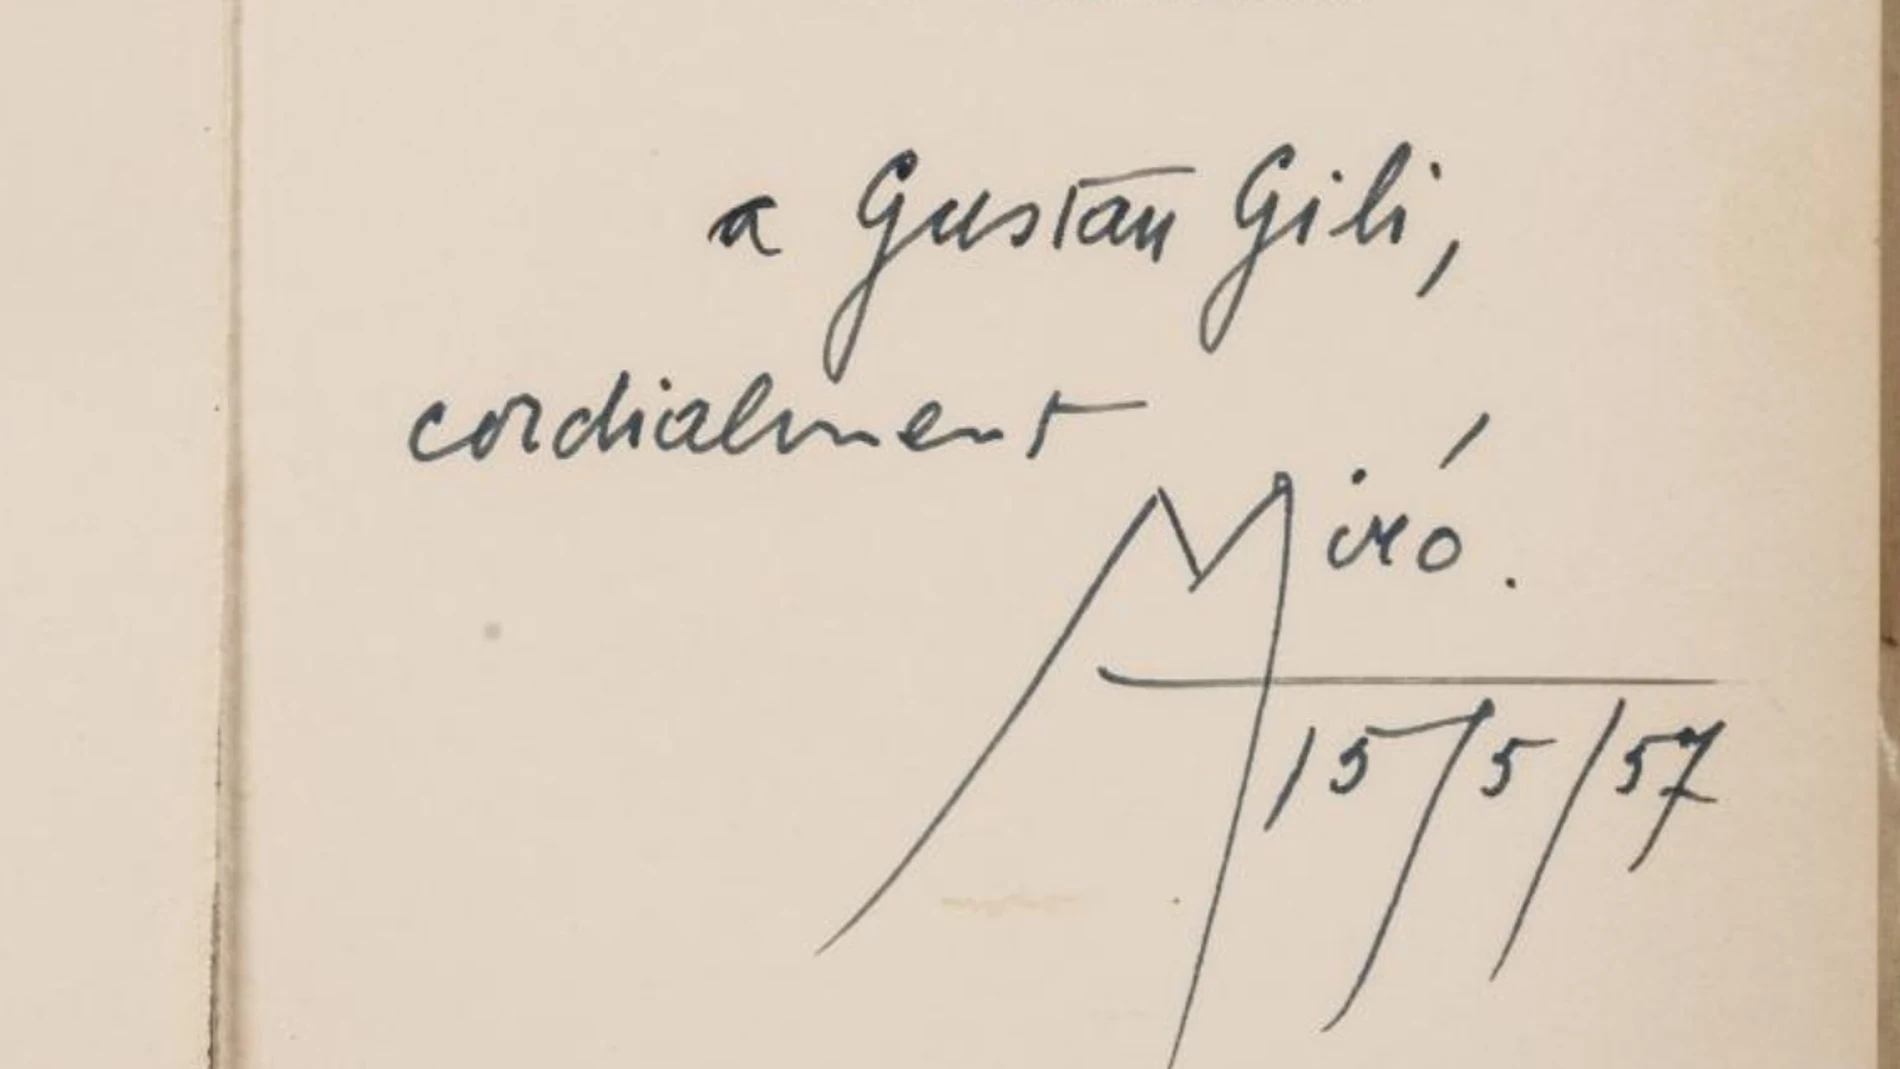 a Gustau Gili,
cordialment
Miró.
15/5/57